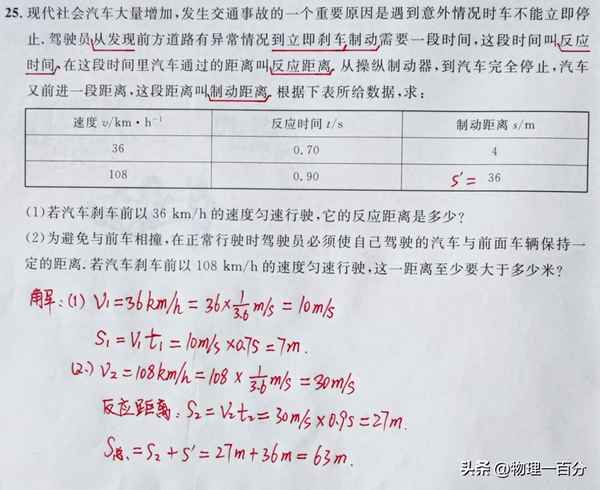 25. 现代社会汽车大量增加,发生交通事故的一个重要原因是遇到意外情况时车不能立即停
止. 驾驶员从发现前方道路有异常情况到立即刹车制动需要一段时间,这段时间叫反应
时间. 在这段时间里汽车通过的距离叫反应距离. 从操纵制动器,到汽车完全停止,汽车
又前进一段距离,这段距离叫制动距离. 根据下表所给数据,求:
速度 v/km·h⁻¹ 反应时间 t/s 制动距离 s/m
36 0.70 4
108 0.90 s′= 36
(1)若汽车刹车前以 36 km/h 的速度匀速行驶,它的反应距离是多少?
(2)为避免与前车相撞,在正常行驶时驾驶员必须使自己驾驶的汽车与前面车辆保持一
定的距离. 若汽车刹车前以 108 km/h 的速度匀速行驶,这一距离至少要大于多少米?
解:(1) V₁=36km/h=36×1/3.6 m/s=10m/s
S₁=V₁t₁=10m/s×0.7s=7m.
(2.) V₂=108km/h=108×1/3.6 m/s=30m/s
反应距离:S₂=V₂t₂=30m/s×0.9s=27m.
S总=S₂+S′=27m+36m=63m.
头条 @物理一百分